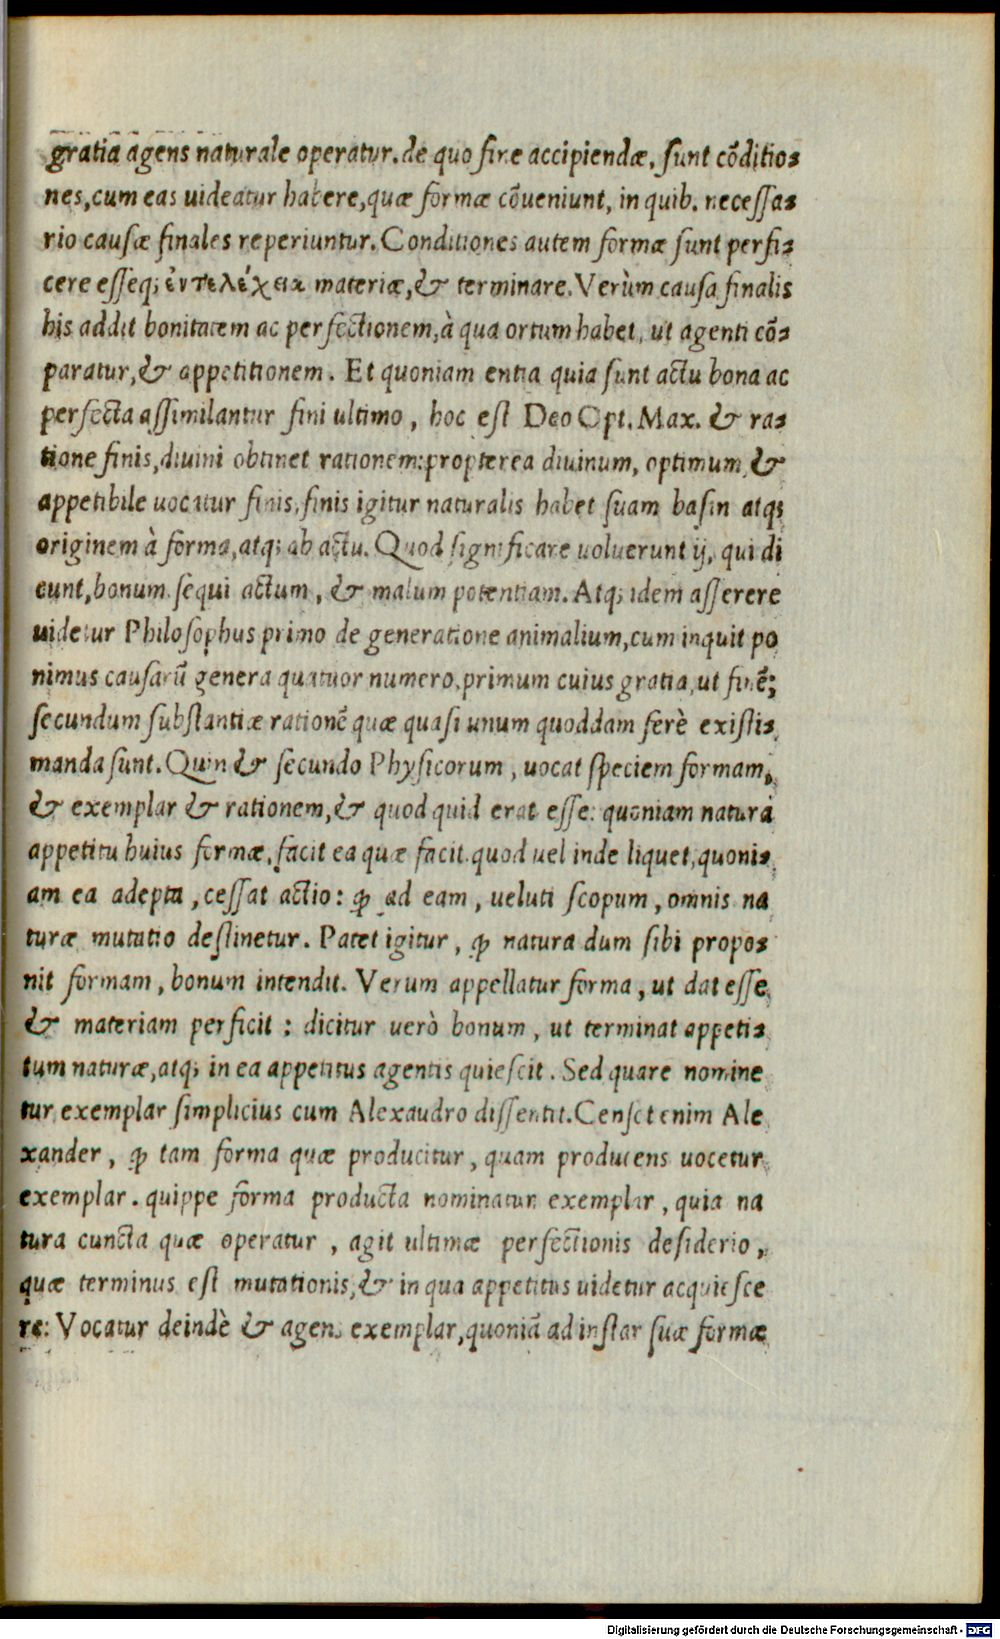 gratia agens naturale operatur. de quo fine accipiendæ, sunt cõditio-
nes, cum eas uideatur habere, quæ formæ cõueniunt, in quib. necessa-
rio causæ finales reperiuntur. Conditiones autem formæ sunt perfi-
cere esseq; ἐντελέχεια materiæ, & terminare. Verùm causa finalis
his addit bonitatem ac perfectionem, à qua ortum habet, ut agenti cõ-
paratur, & appetitionem. Et quoniam entia quia sunt actu bona ac
perfecta assimilantur fini ultimo, hoc est Deo Opt. Max. & ra-
tione finis, diuini obtinet rationem: propterea diuinum, optimum &
appetibile uocatur finis, finis igitur naturalis habet suam basin atq;
originem à forma, atq; ab actu. Quod significare uoluerunt ij, qui di
cunt, bonum sequi actum, & malum potentiam. Atq; idem asserere
uidetur Philosophus primo de generatione animalium, cum inquit po
nimus causarũ genera quatuor numero, primum cuius gratia, ut finẽ;
secundum substantiæ rationẽ quæ quasi unum quoddam ferè existi-
manda sunt. Quin & secundo Physicorum, uocat speciem formam,
& exemplar & rationem, & quod quid erat esse: quoniam natura
appetitu huius formæ, facit ea quæ facit. quod uel inde liquet, quoni-
am ea adepta, cessat actio: ꝙ ad eam, ueluti scopum, omnis na
turæ mutatio destinetur. Patet igitur, ꝙ natura dum sibi propo-
nit formam, bonum intendit. Verum appellatur forma, ut dat esse
& materiam perficit: dicitur uerò bonum, ut terminat appeti-
tum naturæ, atq; in ea appetitus agentis quiescit. Sed quare nomine
tur exemplar simplicius cum Alexaudro dissentit. Censet enim Ale
xander, ꝙ tam forma quæ producitur, quam producens uocetur
exemplar. quippe forma producta nominatur exemplar, quia na
tura cuncta quæ operatur, agit ultimæ perfectionis desiderio,
quæ terminus est mutationis, & in qua appetitus uidetur acquiesce
re: Vocatur deindè & agens exemplar, quoniã ad instar suæ formæ
Digitalisierung gefördert durch die Deutsche Forschungsgemeinschaft - DFG